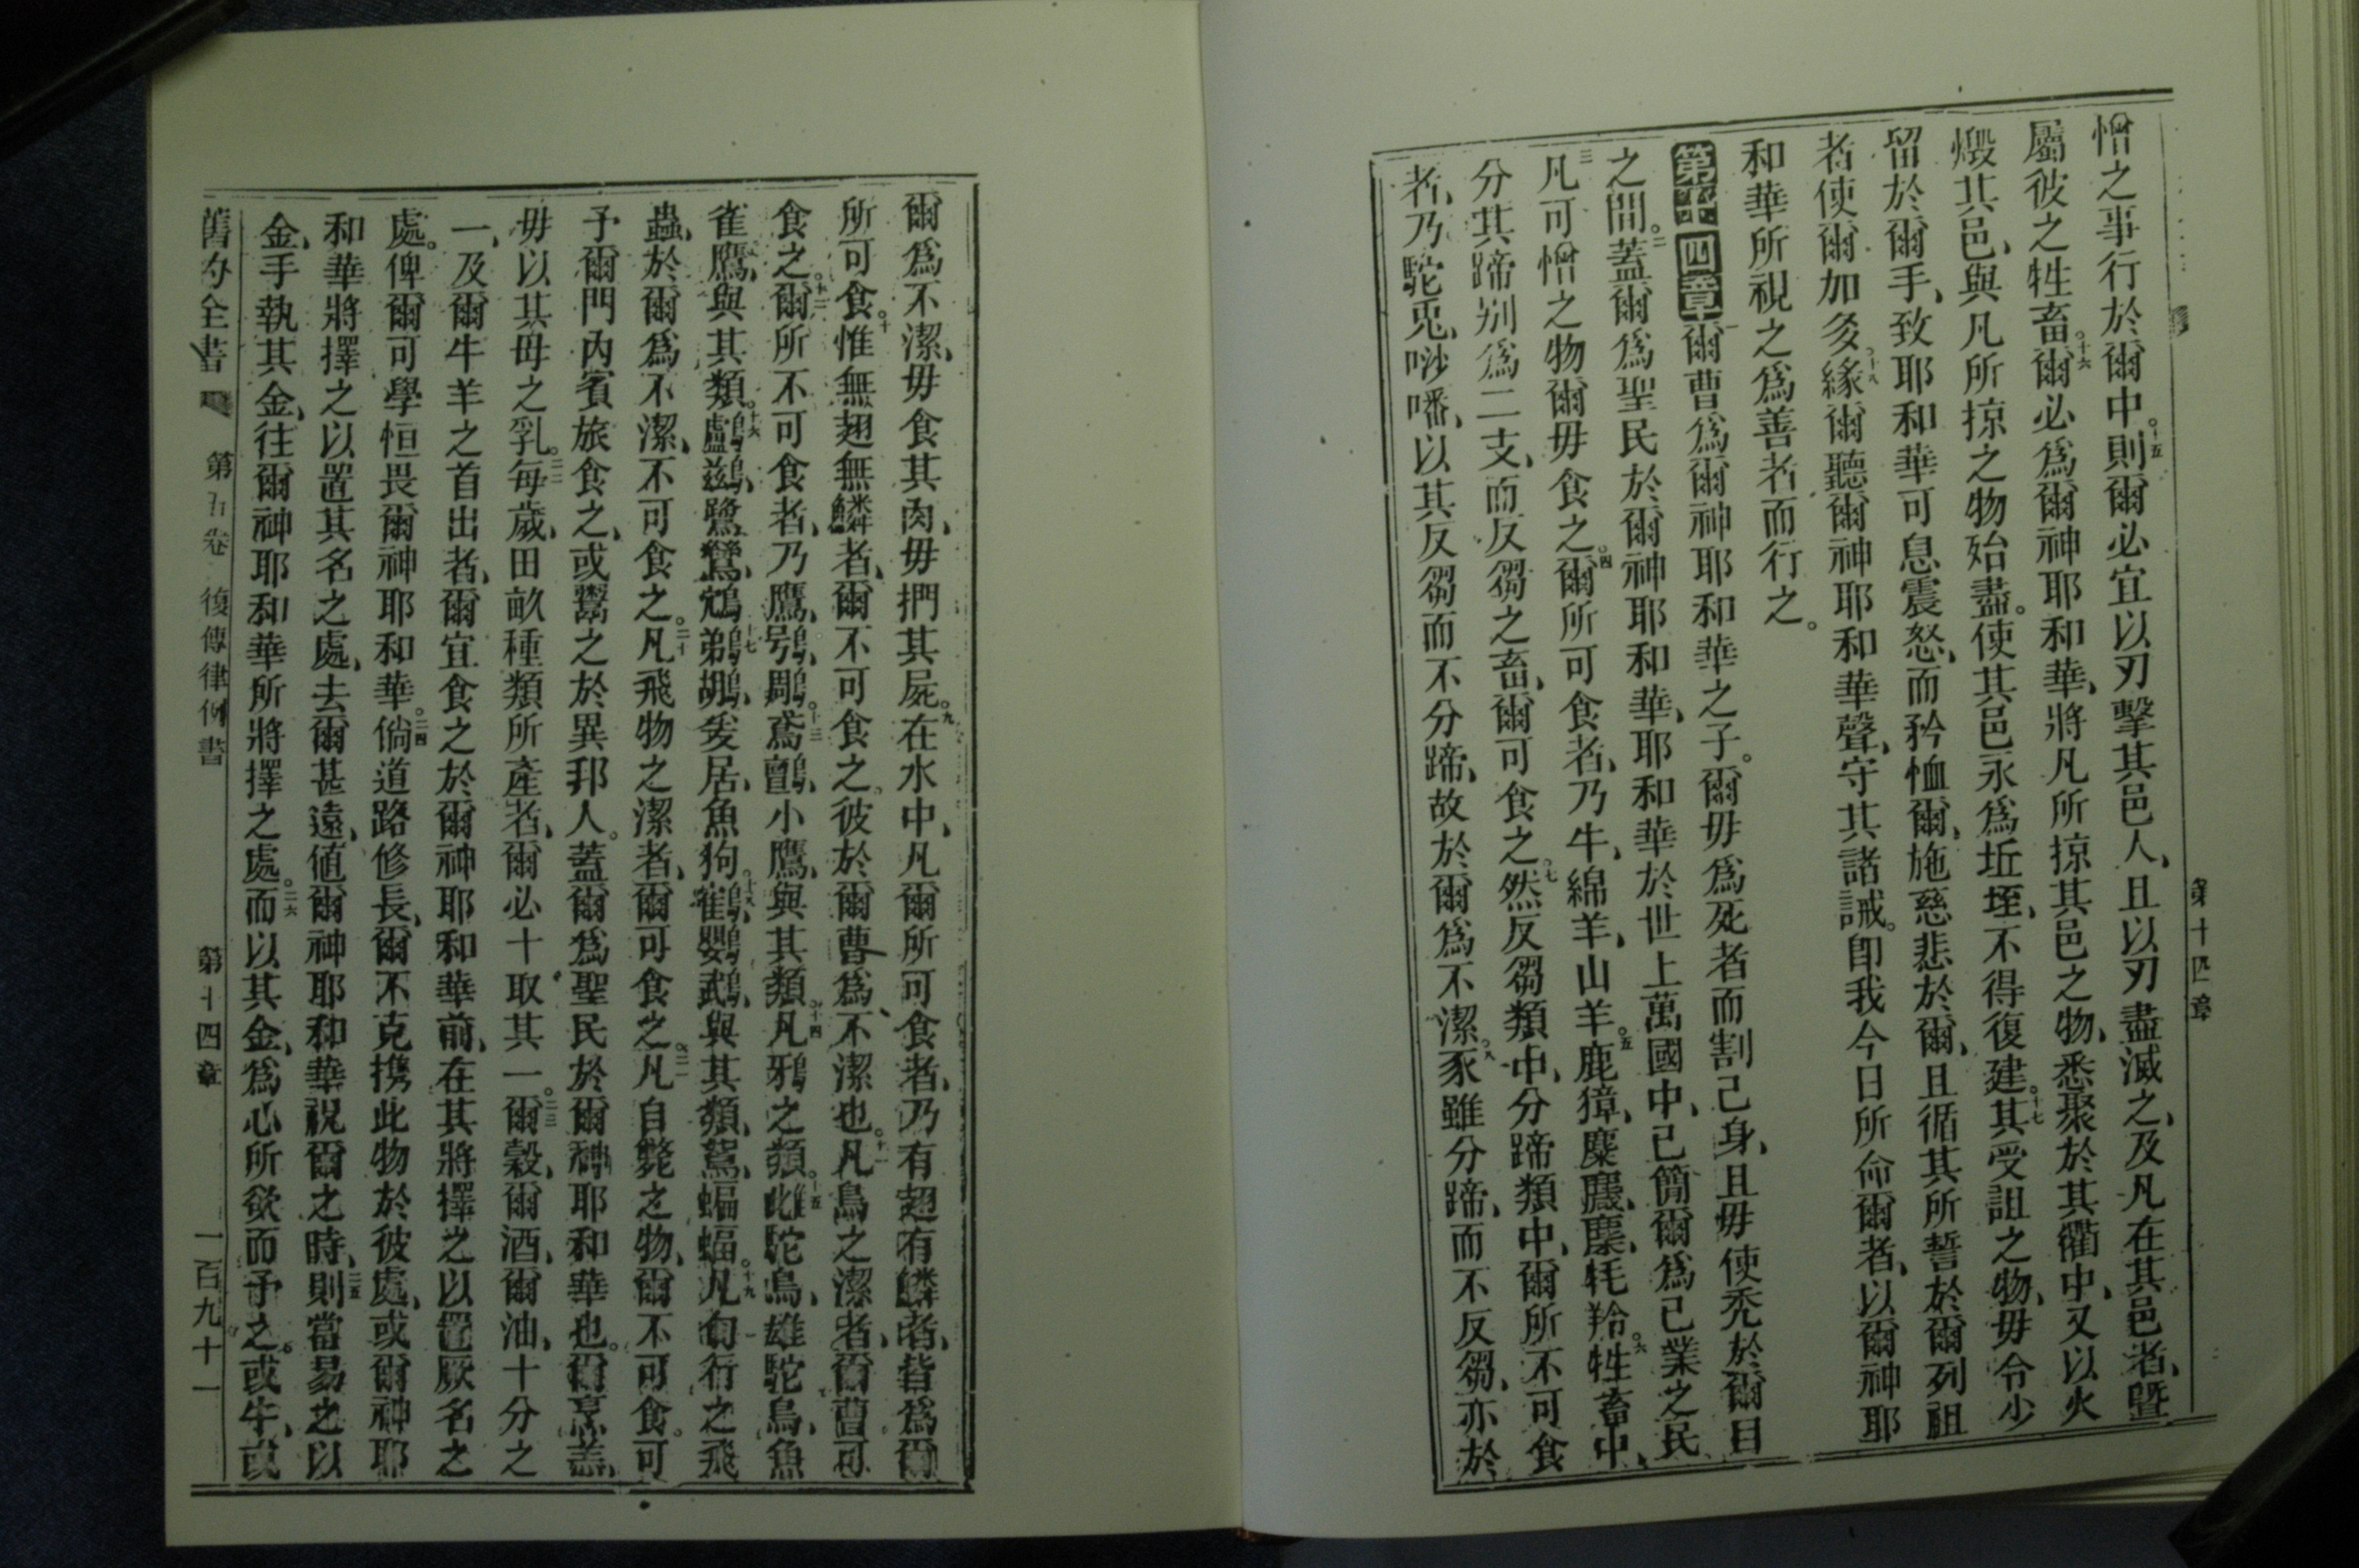 憎之事行於爾中。十五則爾必宜以刃擊其邑人、且以刃盡滅之、及凡在其邑者、曁
屬彼之牲畜。十六爾必爲爾神耶和華、將凡所掠其邑之物、悉聚於其衢中、又以火
燬其邑、與凡所掠之物殆盡。使其邑永爲坵垤、不得復建。十七其受詛之物、毋令少
留於爾手、致耶和華可息震怒、而矜恤爾、施慈悲於爾、且循其所誓於爾列祖
者、使爾加多。十八緣爾聽爾神耶和華聲、守其諸誡。卽我今日所命爾者、以爾神耶
和華所視之爲善者而行之。
第十四章 一爾曹爲爾神耶和華之子。爾毋爲死者而割己身、且毋使禿於爾目
之間。二蓋爾爲聖民於爾神耶和華、耶和華於世上萬國中、已簡爾爲己業之民
三凡可憎之物爾毋食之。四爾所可食者、乃牛、綿羊、山羊。五鹿、獐、麋、麢、麈、牦、羚。六牲畜中、
分其蹄别爲二支、而反芻之畜、爾可食之。七然反芻類中、分蹄類中、爾所不可食
者、乃駝、兎、唦噃、以其反芻而不分蹄、故於爾爲不潔。八豕雖分蹄、而不反芻、亦於
第十四章
爾爲不潔、毋食其肉、毋捫其屍。九在水中、凡爾所可食者、乃有翅有鱗者、皆爲爾
所可食。十惟無翅無鱗者、爾不可食之。彼於爾曹爲不潔也。十一凡鳥之潔者、爾曹可
食之。十二爾所不可食者、乃鷹、鴞、鵰。十三鳶、鸇、小鷹、與其類。十四凡鴉之類。十五雌駝鳥、雄駝鳥、魚
雀鷹、與其類。十六鸕鶿、鷺鶿、鵵。十七鵜鶘、爰居、魚狗。十八鸛、鸚鵡、與其類、鵟、蝙蝠。十九凡匍行之飛
蟲、於爾爲不潔、不可食之。二十凡飛物之潔者、爾可食之。二一凡自斃之物、爾不可食。可
予爾門內賓旅食之、或鬻之於異邦人。蓋爾爲聖民於爾神耶和華也。爾烹羔、
毋以其母之乳。二二每歲、田畝種類所產者、爾必十取其一。二三爾穀、爾酒、爾油、十分之
一、及爾牛羊之首出者、爾宜食之於爾神耶和華前、在其將擇之以置厥名之
處。俾爾可學恒畏爾神耶和華。二四倘道路修長、爾不克携此物於彼處、或爾神耶
和華將擇之以置其名之處、去爾甚遠、値爾神耶和華祝爾之時、二五則當易之以
金、手執其金、往爾神耶和華所將擇之處。二六而以其金、爲心所欲而予之。或牛、或
舊約全書 第五卷 復傳律例書 第十四章 一百九十一